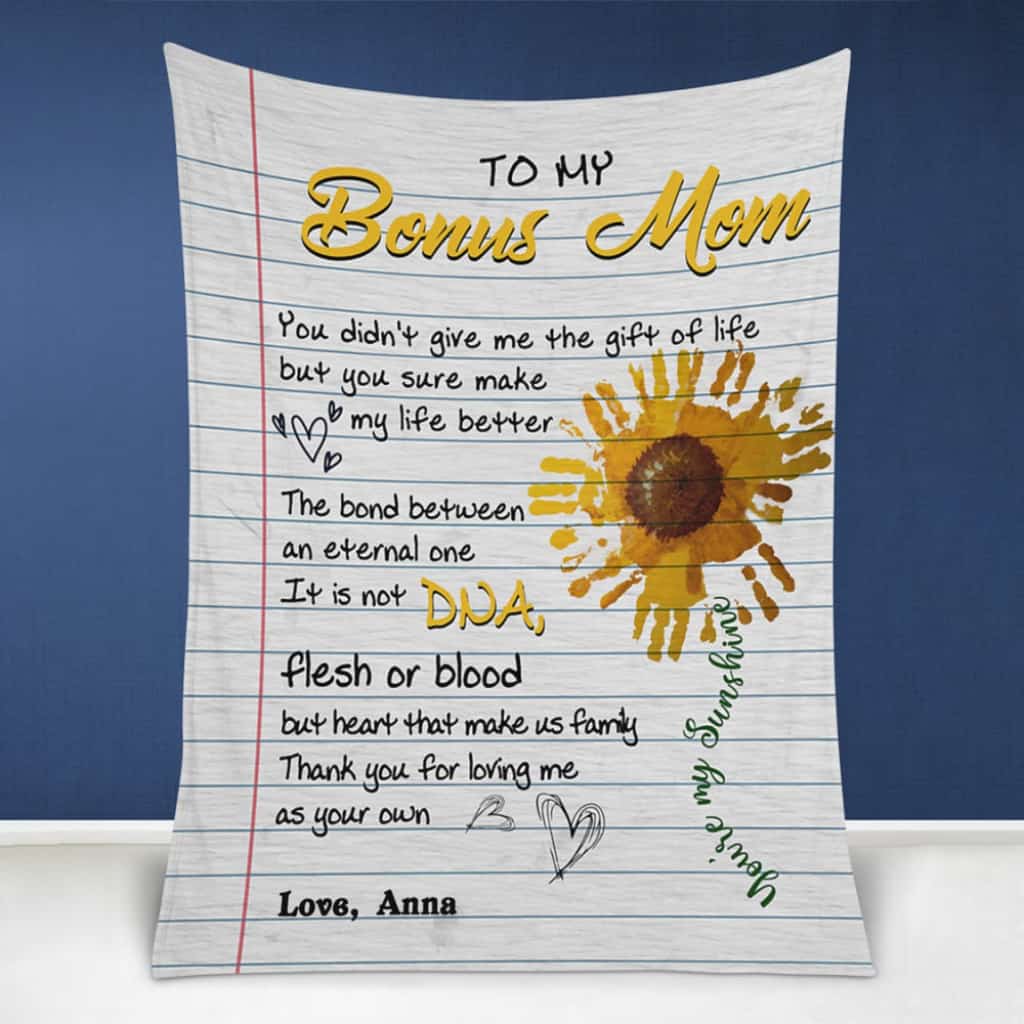 TO MY
Bonus Mom
You didn't give me the gift of life
but you sure make
my life better
The bond between
an eternal one
It is not DNA,
flesh or blood
but heart that make us family
Thank you for loving me
as your own
You're my Sunshine
Love, Anna